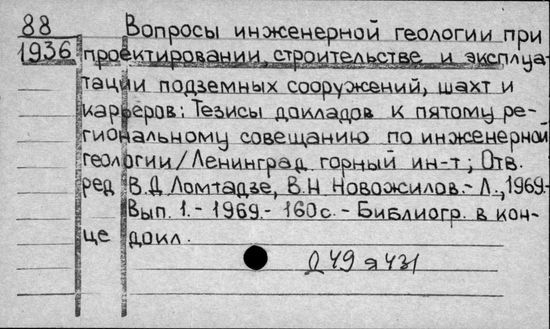 88 Вопросы инженерной геологии при
1936 проектировании, строительстве и эксплуа-
тации подземных сооружений, шахт и
карьеров: Тезисы докладов к пятому ре-
гиональному совещанию по инженерной
геологии/Ленинград. горный ин-т; Отв.
ред В.Д Ломтадзе, В.Н Новожилов.- Л., 1969-
Вып. 1.- 1969.- 160с.- Библиогр. в кон-
це докл.
Д49 я431